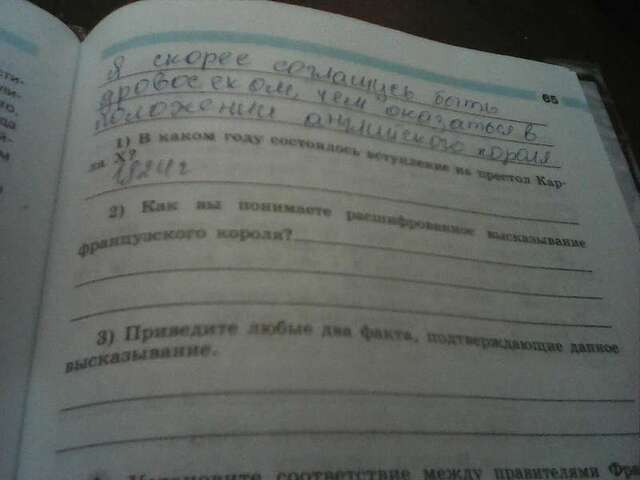 65
Я скорее соглашусь быть
дровосеком, чем оказаться в
положении английского короля
1) В каком году состоялось вступление на престол Кар-
ла X?
1824 г
2) Как вы понимаете расшифрованное высказывание
французского короля?
3) Приведите любые два факта, подтверждающие данное
высказывание.
Установите соответствие между правителями Фра